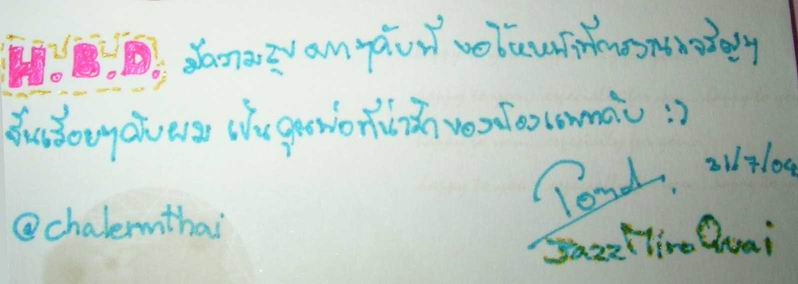 H.B.D. มีความสุขมากๆคับพี่ ขอให้หน้าที่การงานเจริญๆ
ขึ้นเรื่อยๆคับผม เป็นคุณพ่อที่น่ารักของน้องแพทคับ :)
21/7/04
@chalermthai
JazzMinoQuai